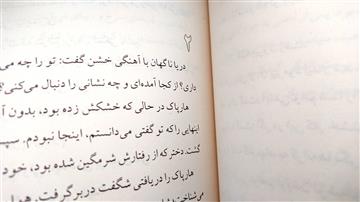 ۲
دریا ناگهان با آهنگی خشن گفت: تو را چه می
داری؟ از کجا آمده‌ای و چه نشانی را دنبال می‌کنی؟
هارپاک در حالی که خشکش زده بود، بدون آ
اینهایی را که تو گفتی می‌دانستم، اینجا نبودم. سپس
گشت. دختر که از رفتارش شرمگین شده بود، خود
هارپاک را دریافتی شگفت در بر گرفت. هوا